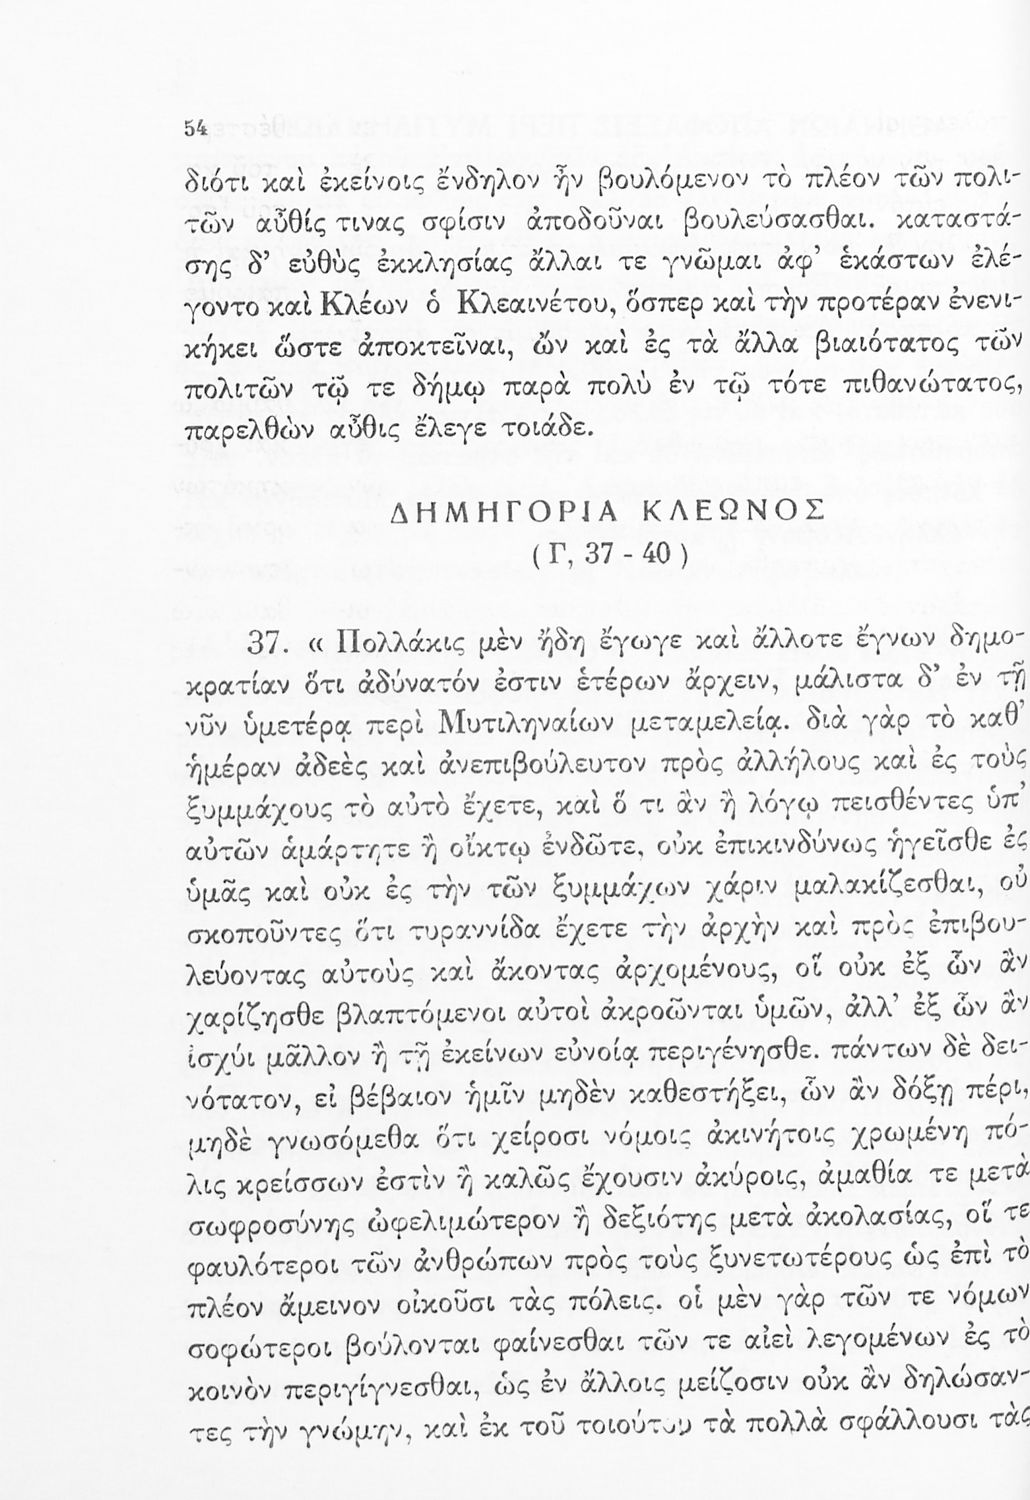 54
διότι καὶ ἐκείνοις ἔνδηλον ἦν βουλόμενον τὸ πλέον τῶν πολι-
τῶν αὖθίς τινας σφίσιν ἀποδοῦναι βουλεύσασθαι. καταστά-
σης δ’ εὐθὺς ἐκκλησίας ἄλλαι τε γνῶμαι ἀφ’ ἑκάστων ἐλέ-
γοντο καὶ Κλέων ὁ Κλεαινέτου, ὅσπερ καὶ τὴν προτέραν ἐνενι-
κήκει ὥστε ἀποκτεῖναι, ὢν καὶ ἐς τὰ ἄλλα βιαιότατος τῶν
πολιτῶν τῷ τε δήμῳ παρὰ πολὺ ἐν τῷ τότε πιθανώτατος,
παρελθὼν αὖθις ἔλεγε τοιάδε.
ΔΗΜΗΓΟΡΙΑ ΚΛΕΩΝΟΣ
( Γ, 37 - 40 )
37. « Πολλάκις μὲν ἤδη ἔγωγε καὶ ἄλλοτε ἔγνων δημο-
κρατίαν ὅτι ἀδύνατόν ἐστιν ἑτέρων ἄρχειν, μάλιστα δ’ ἐν τῇ
νῦν ὑμετέρᾳ περὶ Μυτιληναίων μεταμελείᾳ. διὰ γὰρ τὸ καθ’
ἡμέραν ἀδεὲς καὶ ἀνεπιβούλευτον πρὸς ἀλλήλους καὶ ἐς τοὺς
ξυμμάχους τὸ αὐτὸ ἔχετε, καὶ ὅ τι ἂν ἢ λόγῳ πεισθέντες ὑπ’
αὐτῶν ἁμάρτητε ἢ οἴκτῳ ἐνδῶτε, οὐκ ἐπικινδύνως ἡγεῖσθε ἐς
ὑμᾶς καὶ οὐκ ἐς τὴν τῶν ξυμμάχων χάριν μαλακίζεσθαι, οὐ
σκοποῦντες ὅτι τυραννίδα ἔχετε τὴν ἀρχὴν καὶ πρὸς ἐπιβου-
λεύοντας αὐτοὺς καὶ ἄκοντας ἀρχομένους, οἳ οὐκ ἐξ ὧν ἂν
χαρίζησθε βλαπτόμενοι αὐτοὶ ἀκροῶνται ὑμῶν, ἀλλ’ ἐξ ὧν ἂν
ἰσχύι μᾶλλον ἢ τῇ ἐκείνων εὐνοίᾳ περιγένησθε. πάντων δὲ δει-
νότατον, εἰ βέβαιον ἡμῖν μηδὲν καθεστήξει, ὧν ἂν δόξῃ πέρι,
μηδὲ γνωσόμεθα ὅτι χείροσι νόμοις ἀκινήτοις χρωμένη πό-
λις κρείσσων ἐστὶν ἢ καλῶς ἔχουσιν ἀκύροις, ἀμαθία τε μετὰ
σωφροσύνης ὠφελιμώτερον ἢ δεξιότης μετὰ ἀκολασίας, οἵ τε
φαυλότεροι τῶν ἀνθρώπων πρὸς τοὺς ξυνετωτέρους ὡς ἐπὶ τὸ
πλέον ἄμεινον οἰκοῦσι τὰς πόλεις. οἱ μὲν γὰρ τῶν τε νόμων
σοφώτεροι βούλονται φαίνεσθαι τῶν τε αἰεὶ λεγομένων ἐς τὸ
κοινὸν περιγίγνεσθαι, ὡς ἐν ἄλλοις μείζοσιν οὐκ ἂν δηλώσαν-
τες τὴν γνώμην, καὶ ἐκ τοῦ τοιούτου τὰ πολλὰ σφάλλουσι τὰς